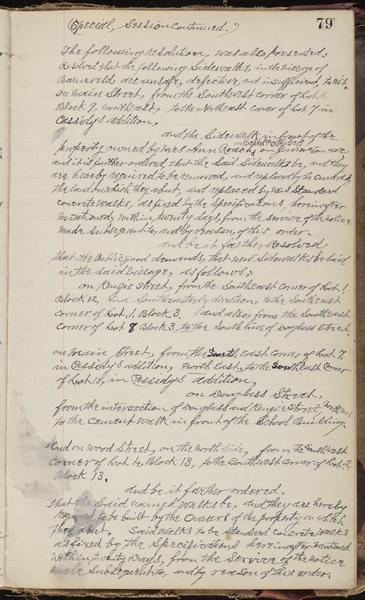 (Special, Session Continued.) 79
The following resolution, was also presented.
Resolved that the following Sidewalks, in the village of
Barneveld are unsafe, defective and insufficient, to wit-
on Main Street, from the Southwest corner of Lot
Block 9, northeast, to the Northeast corner of Lot 7 in
Cassidy's addition,
and the Sidewalk in front of the
property owned by Mrs Ann on
and it is further ordered, that the Said Sidewalks be, and they
are hereby required to be removed, and replaced by the owners of
the land on which they abut, and replaced by new Standard
concrete walks, as fixed by the Specifications, hereinafter
mentioned, within twenty days, from the service of the notice
made Subsequent to, and by reason of this order.
and be it further Resolved
that the Public good demands, that new Sidewalks be laid
in the said Village, as follows;
on Street, from the Southeast corner of Lot 1
Block 12, in a Southeasterly direction, to the Southeast
corner of Lot, 1, Block 3, and also, from the Southeast
corner of Lot 8 Block 3, to the South line of Douglass Street.
on Main Street, from the South East Corner of Lot 7,
in Cassidy's addition, north East, to the South east Corner
of Lot 10, in Cassidy's addition,
on Douglass Street,
from the intersection of Douglass and Street,
to the cement walk in front of the School Building.
And on Wood Street, on the north Side, from the Southwest
corner of Lot 4, Block 13, to the Southwest corner of Lot 2
Block 13.
and be it further ordered.
that the Said Walks be, and they are hereby
required to be built by the Owners of the property on which
they abut. Said walks to be Standard concrete walks
as fixed by the Specifications hereinafter mentioned
within twenty Days, from the Service of the notice
made Subsequent to, and by reason of this order.